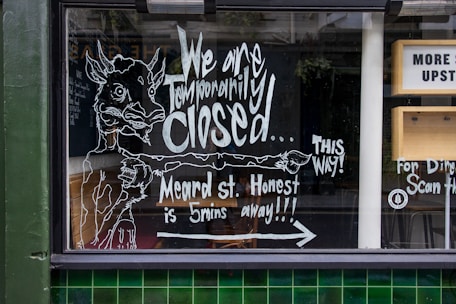 We are
Temporarily
Closed...
THIS
WAY!
Meard st. Honest
is 5mins away!!!
MORE
UPST
For Dire
Scan th